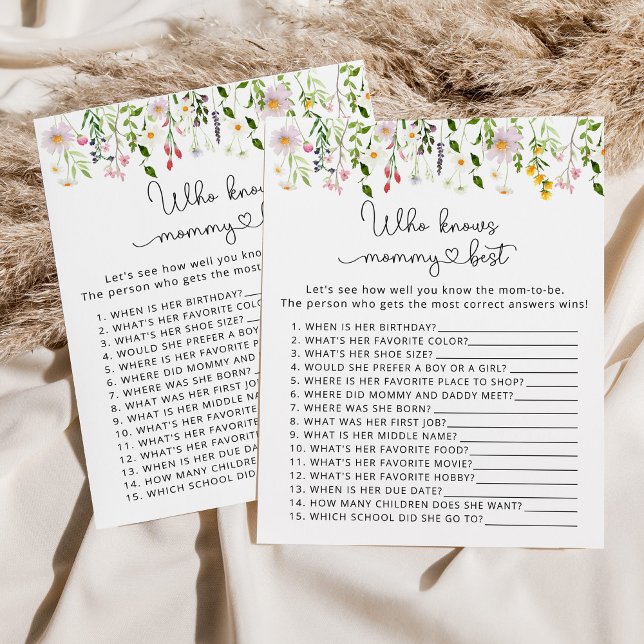 Who knows
mommy best
Let's see how well you know the mom-to-be.
The person who gets the most correct answers wins!
1. WHEN IS HER BIRTHDAY?
2. WHAT'S HER FAVORITE COLOR?
3. WHAT'S HER SHOE SIZE?
4. WOULD SHE PREFER A BOY OR A GIRL?
5. WHERE IS HER FAVORITE PLACE TO SHOP?
6. WHERE DID MOMMY AND DADDY MEET?
7. WHERE WAS SHE BORN?
8. WHAT WAS HER FIRST JOB?
9. WHAT IS HER MIDDLE NAME?
10. WHAT'S HER FAVORITE FOOD?
11. WHAT'S HER FAVORITE MOVIE?
12. WHAT'S HER FAVORITE HOBBY?
13. WHEN IS HER DUE DATE?
14. HOW MANY CHILDREN DOES SHE WANT?
15. WHICH SCHOOL DID SHE GO TO?
Who know
mommy
Let's see how well you kn
The person who gets the most
1. WHEN IS HER BIRTHDAY?
2. WHAT'S HER FAVORITE COLOR
3. WHAT'S HER SHOE SIZE?
4. WOULD SHE PREFER A BOY
5. WHERE IS HER FAVORITE P
6. WHERE DID MOMMY AND
7. WHERE WAS SHE BORN?
8. WHAT WAS HER FIRST JOB
9. WHAT IS HER MIDDLE NAM
10. WHAT'S HER FAVORITE
11. WHAT'S HER FAVORITE
12. WHAT'S HER FAVORITE
13. WHEN IS HER DUE DATE
14. HOW MANY CHILDREN
15. WHICH SCHOOL DID